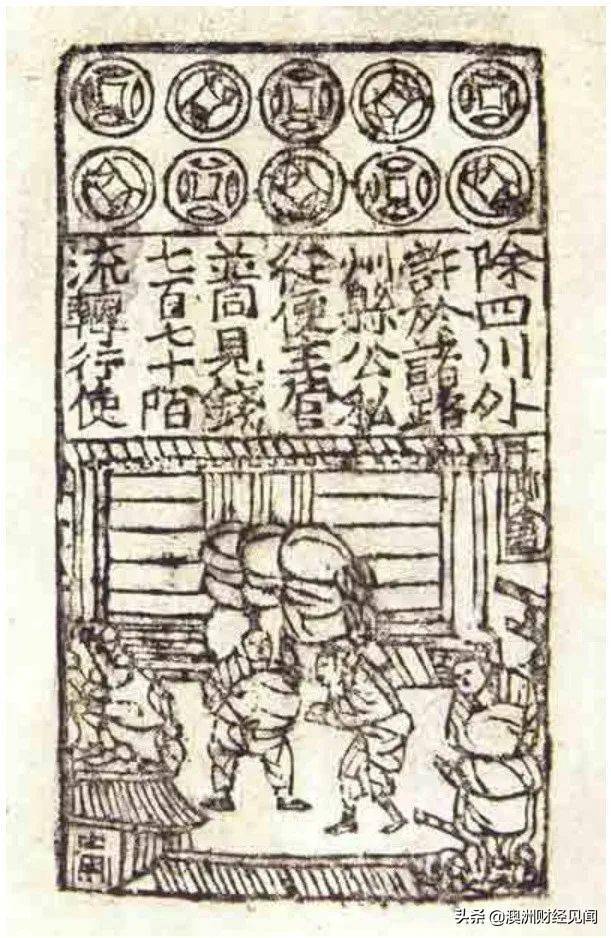 除四川外
許於諸路
州縣公私
從便主管
並同見錢
七百七十陌
流轉行使
千斯倉
头条 @澳洲财经见闻